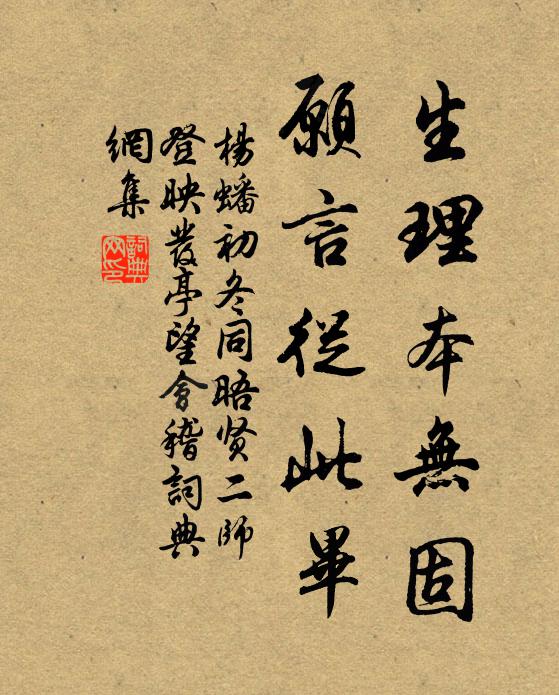 生理本無固
願言從此畢
楊蟠初冬同晤贤二師
登映發亭望會稽詞典
網集
詞典网印